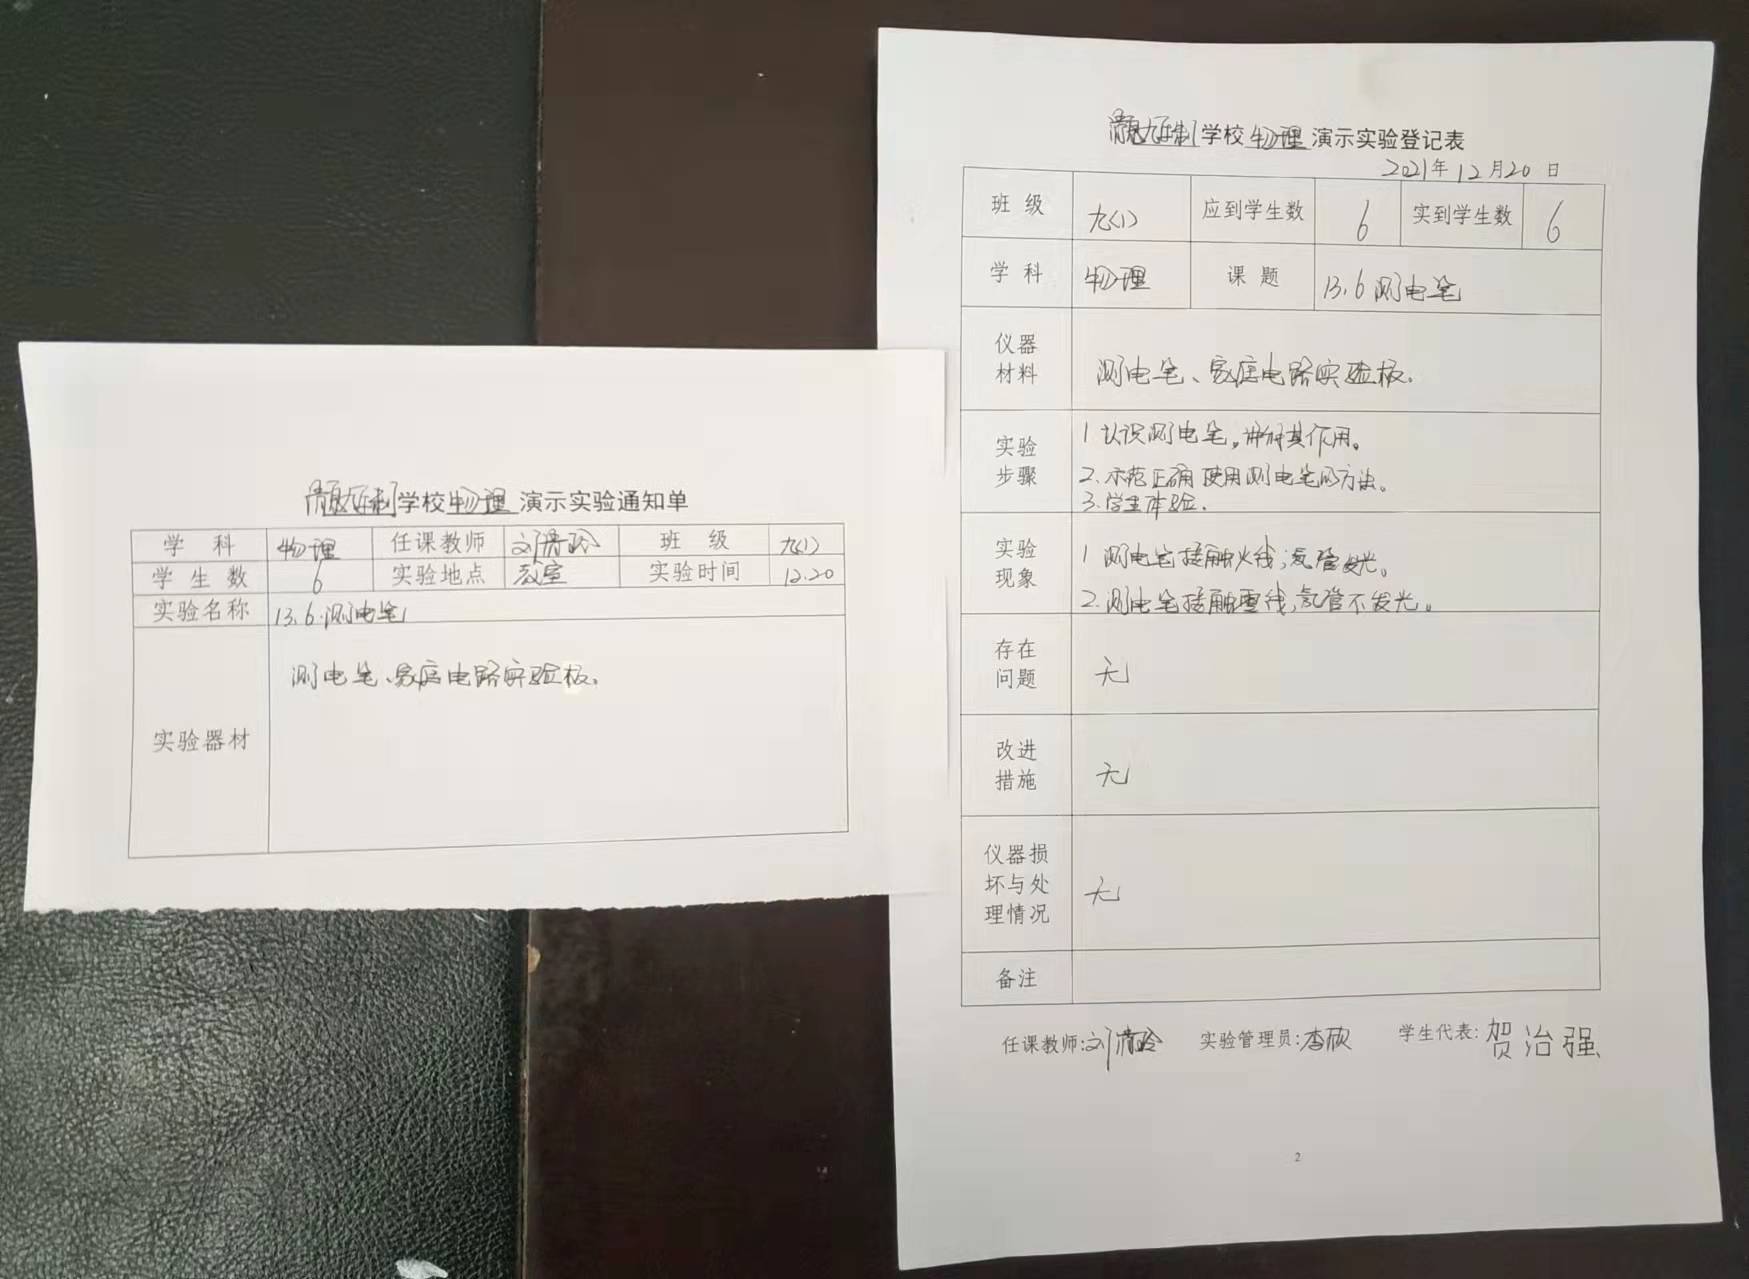 九年制学校物理演示实验通知单
学科 物理 任课教师 刘 班级 九(1)
学生数 6 实验地点 教室 实验时间 12.20
实验名称 13.6.测电笔
实验器材 测电笔、家庭电路实验板.
九年制学校物理演示实验登记表
2021年12月20日
班级 九(1) 应到学生数 6 实到学生数 6
学科 物理 课题 13.6测电笔
仪器
材料
测电笔、家庭电路实验板.
实验
步骤
1 认识测电笔。讲解其作用。
2.示范正确使用测电笔的方法。
3.学生体验.
实验
现象
1 测电笔接触火线;氖管发光。
2.测电笔接触零线,氖管不发光。
存在
问题
无
改进
措施
无
仪器损
坏与处
理情况
无
备注
任课教师:刘 实验管理员:李欣 学生代表:贺治强
2